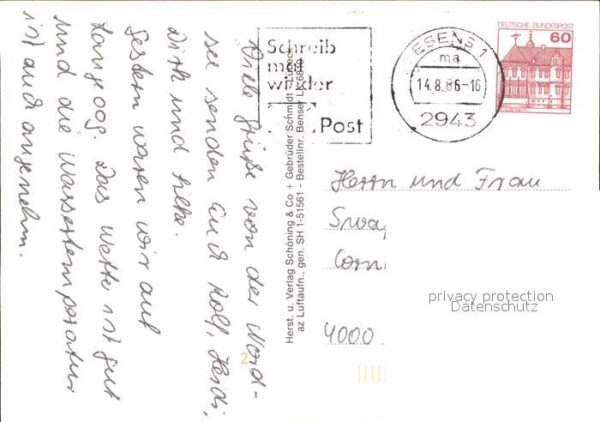 Viele Grüße von der Nord-
see senden Euch Rolf, Heidi,
Dirk und Silke.
Gestern waren wir auf
Langeoog. Das Wetter ist gut
und die Wassertemperatur
ist auch angenehm.
Schreib
mal
wieder
Post
ESENS 1
ma
14.8.86-16
2943
DEUTSCHE BUNDESPOST
60
Herst. u. Verlag Schöning & Co + Gebrüder Schmidt
az Luftaufn., gen. SH 1-51561 - Bestellnr. Benser
Herrn und Frau
Swa
Corn
4000
privacy protection
Datenschutz
2